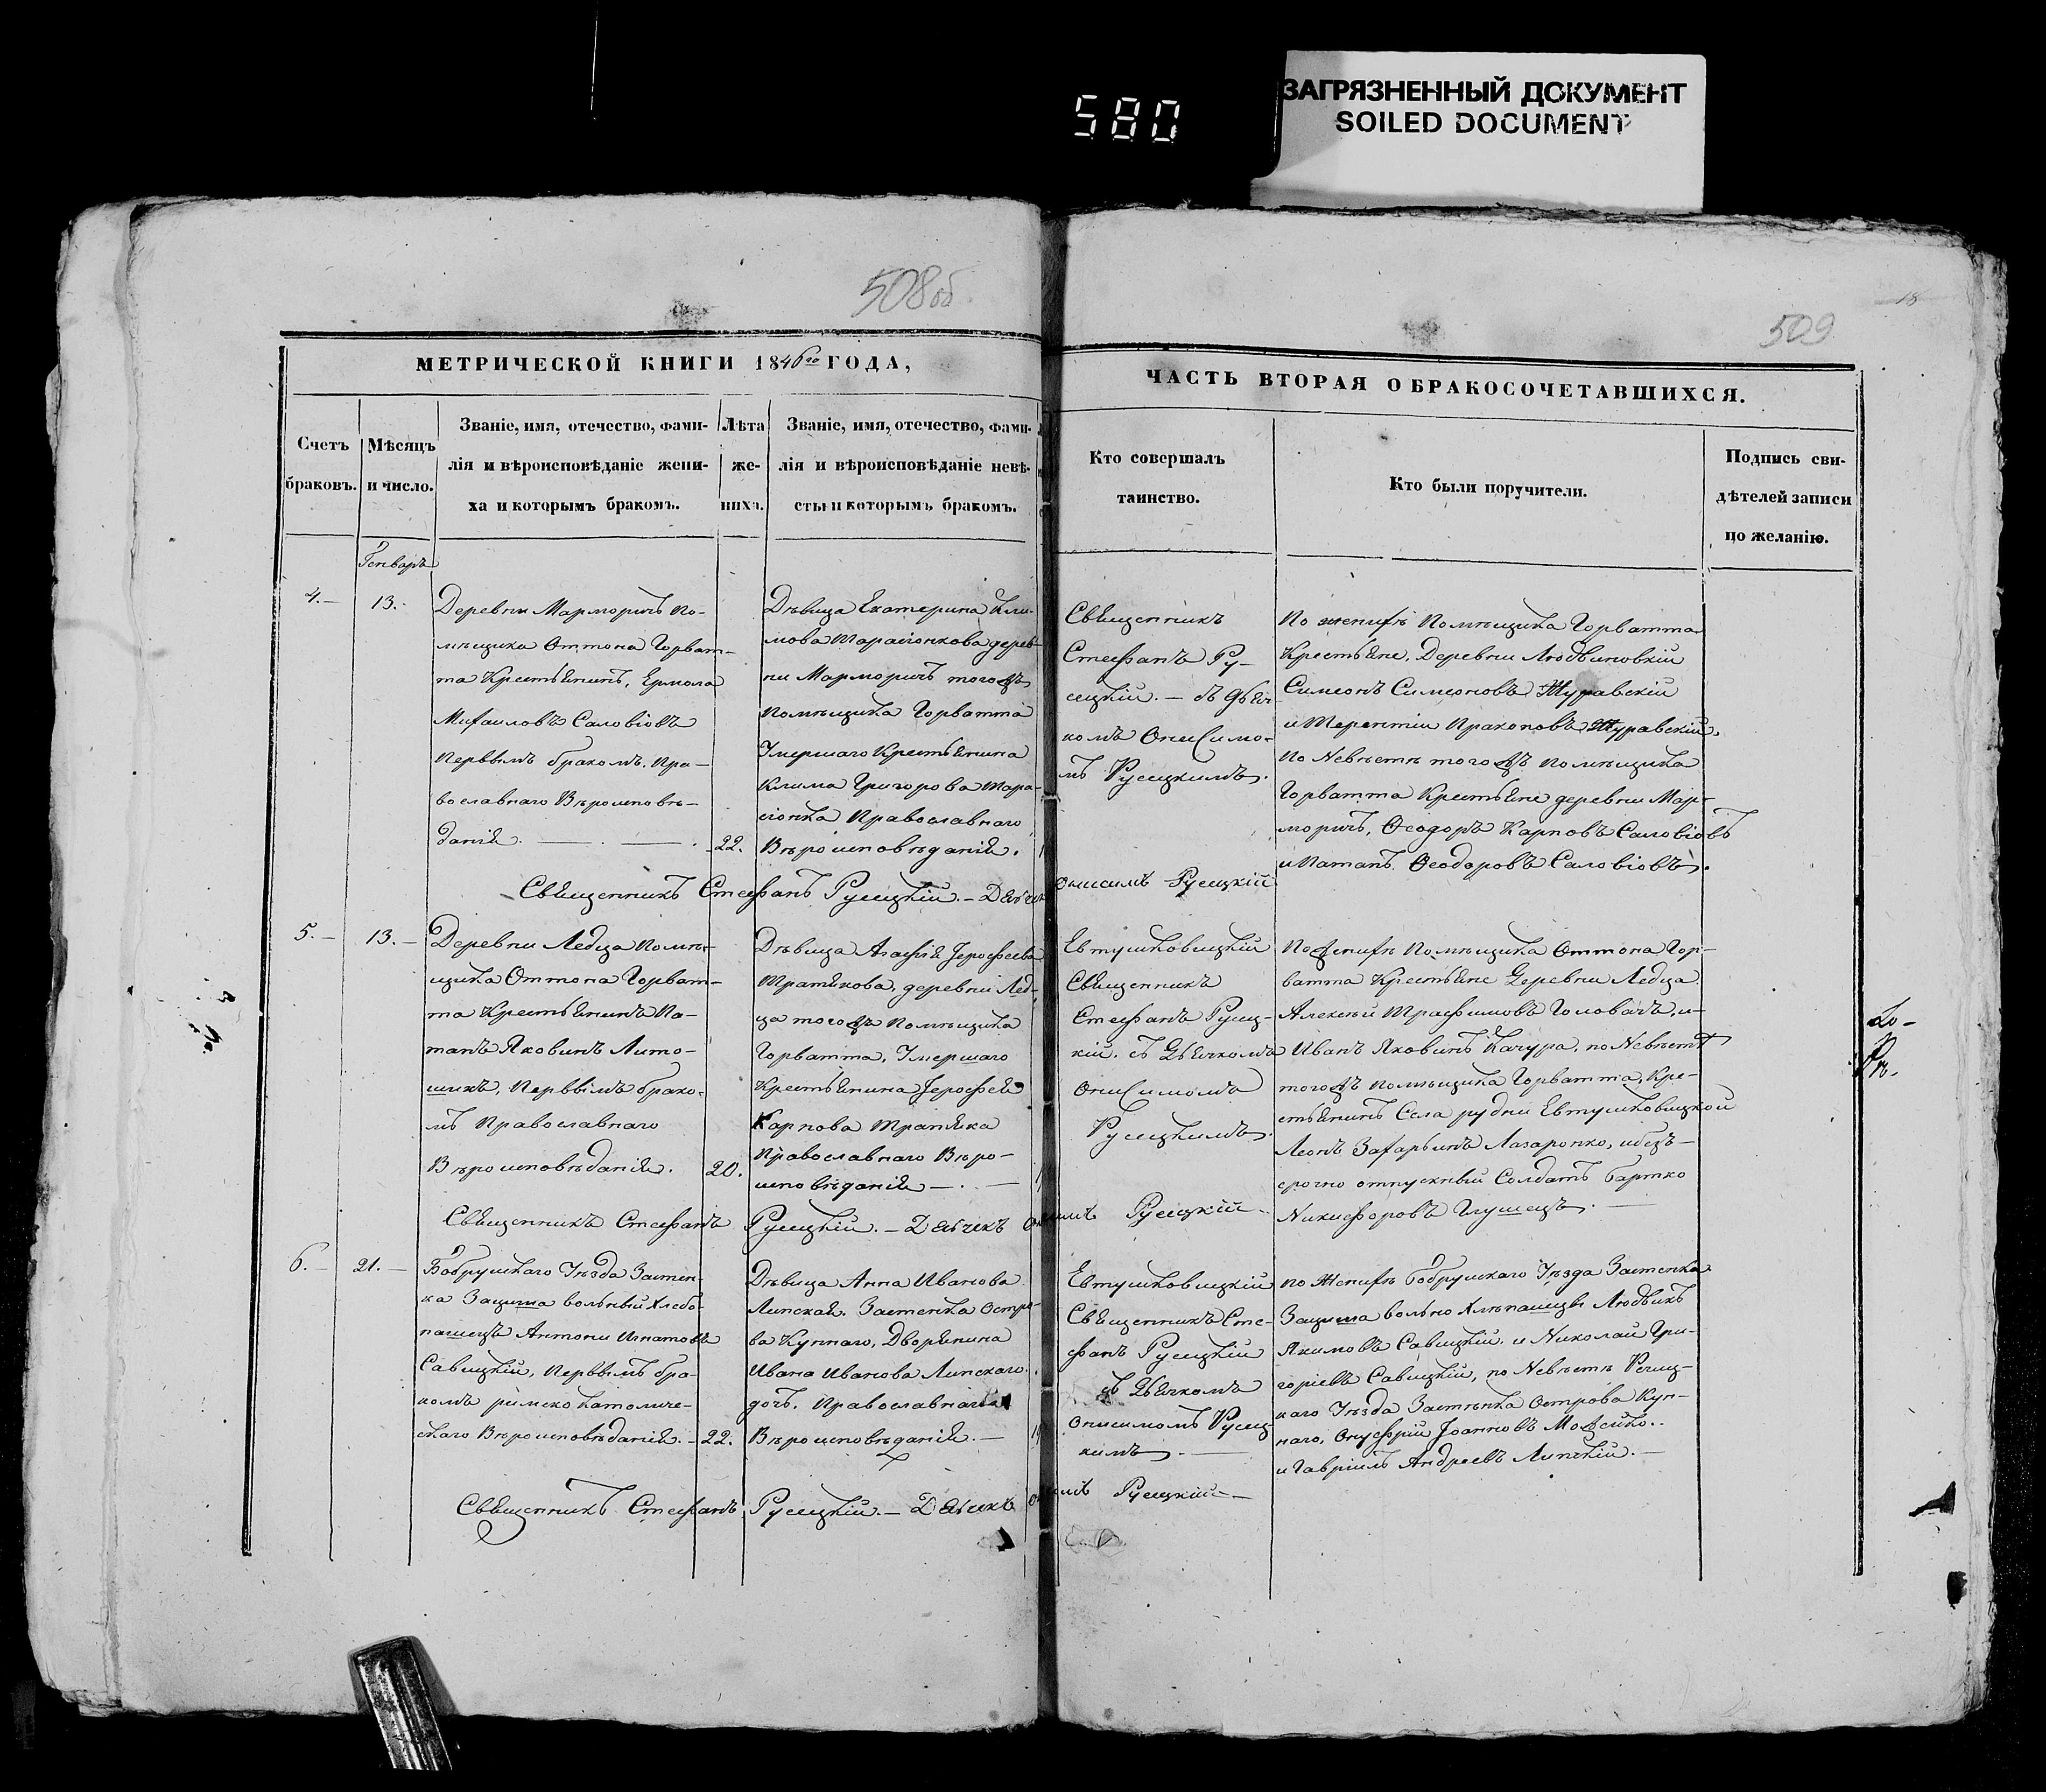 580
ЗАГРЯЗНЕННЫЙ ДОКУМЕНТ
SOILED DOCUMENT
508об
509
18
МЕТРИЧЕСКОЙ КНИГИ 1846го ГОДА,
ЧАСТЬ ВТОРАЯ О БРАКОСОЧЕТАВШИХСЯ.
Счетъ
браковъ.
Мѣсяцъ
и число.
Званіе, имя, отечество, фами-
лія и вѣроисповѣданіе жени-
ха и которымъ бракомъ.
Лѣта
же-
ниха.
Званіе, имя, отечество, фами-
лія и вѣроисповѣданіе невѣ-
сты и которымъ бракомъ.
Кто совершалъ
таинство.
Кто были поручители.
Подпись сви-
дѣтелей записи
по желанію.
Генварь
4.—
13.
Деревни Марморичъ по-
мѣщика Оттона Горват-
та Крестьянинъ, Ермола
Михаиловъ Саловіовъ
первымъ бракомъ. пра-
вославнаго Вѣроисповѣ-
данія.
22.
Дѣвица Екатерина Кли-
мова Тарасіонкова дерев-
ни Марморичъ тогожъ
помѣщика Горватта
Умершаго Крестьянина
Клима Григорова Тара-
сіонка Православнаго
Вѣроисповѣданія.
Священникъ
Стефанъ Ру-
сецкій.— съ дьяч-
комъ Онисимо-
мъ Русецкимъ.
По женихѣ помѣщика Горватта
Крестьяне, Деревни Людвиновкіи
Симеонъ Симеоновъ Журавскій
и Терентіи Прокоповъ Журавскій,
по Невѣстѣ тогожъ помѣщика
Горватта Крестьяне деревни Мар-
моричъ, Ѳеодоръ Карповъ Саловіовъ
и Патапъ Ѳеодоровъ Саловіовъ.
Священникъ Стефанъ Русецкій.— Дьячек Онисимъ Русецкій
5.—
13.—
Деревни Ледца помѣ-
щика Оттона Горват-
та Крестьянинъ Па-
тапъ Яковинъ Лито-
шикъ, первымъ брако-
мъ Православнаго
Вѣроисповѣданія.
20.
Дѣвица Агафія Іерофеева
Трапякова, деревни Лед-
ца тогожъ помѣщика
Горватта, Умершаго
Крестьянина Іерофея
Карпова Трапяка
Православнаго Вѣро-
исповѣданія —
Евтушковицкій
Священникъ
Стефанъ Русец-
кій. съ Дьячкомъ
Онисимомъ
Русецкимъ.
По женихѣ помѣщика Оттона Гор-
ватта Крестьяне Деревни Ледца
Алексѣй Трафимовъ Головачъ, и
Иванъ Яковинъ Качура, по Невѣстѣ
тогожъ помѣщика Горватта, Кре-
стьянинъ Села рудни Евтушковицкой
Леонъ Захарьинъ Лазаронко, и безъ-
срочно отпускный Солдатъ Бартко
Никифоровъ Глушецъ.
Священникъ Стефанъ Русецкій.— Дьячекъ Онисимъ Русецкій
6.—
21.—
Бобруйскаго Уѣзда Застен-
ка Защита вольный Хлебо-
пашецъ Антони Игнатовъ
Савицкій, первымъ бра-
комъ римско католиче-
скаго Вѣроисповѣданія.—
22.
Дѣвица Анна Иванова
Липская. Застенка Остро-
ва Купнаго, Дворянина
Ивана Иванова Липскаго
дочь, Православнаго
Вѣроисповѣданія.—
Евтушковицкій
Священникъ Сте-
фанъ Русецкій
съ Дьячкомъ
Онисимомъ Русец-
кимъ.
по Женихѣ Бобруйскаго Уѣзда Застенка
Защита вольно Хлѣпашцы Людвикъ
Якимовъ Савицкій. и Николай Гри-
горіевъ Савицкій, по Невѣстѣ Речиц-
каго Уѣзда Застѣнка Острова Куп-
наго, Онуфрій Іоанновъ Можейко.
и Гавріилъ Андреевъ Липскій.—
Священникъ Стефанъ Русецкій.— Дьячекъ Онисимъ Русецкій—